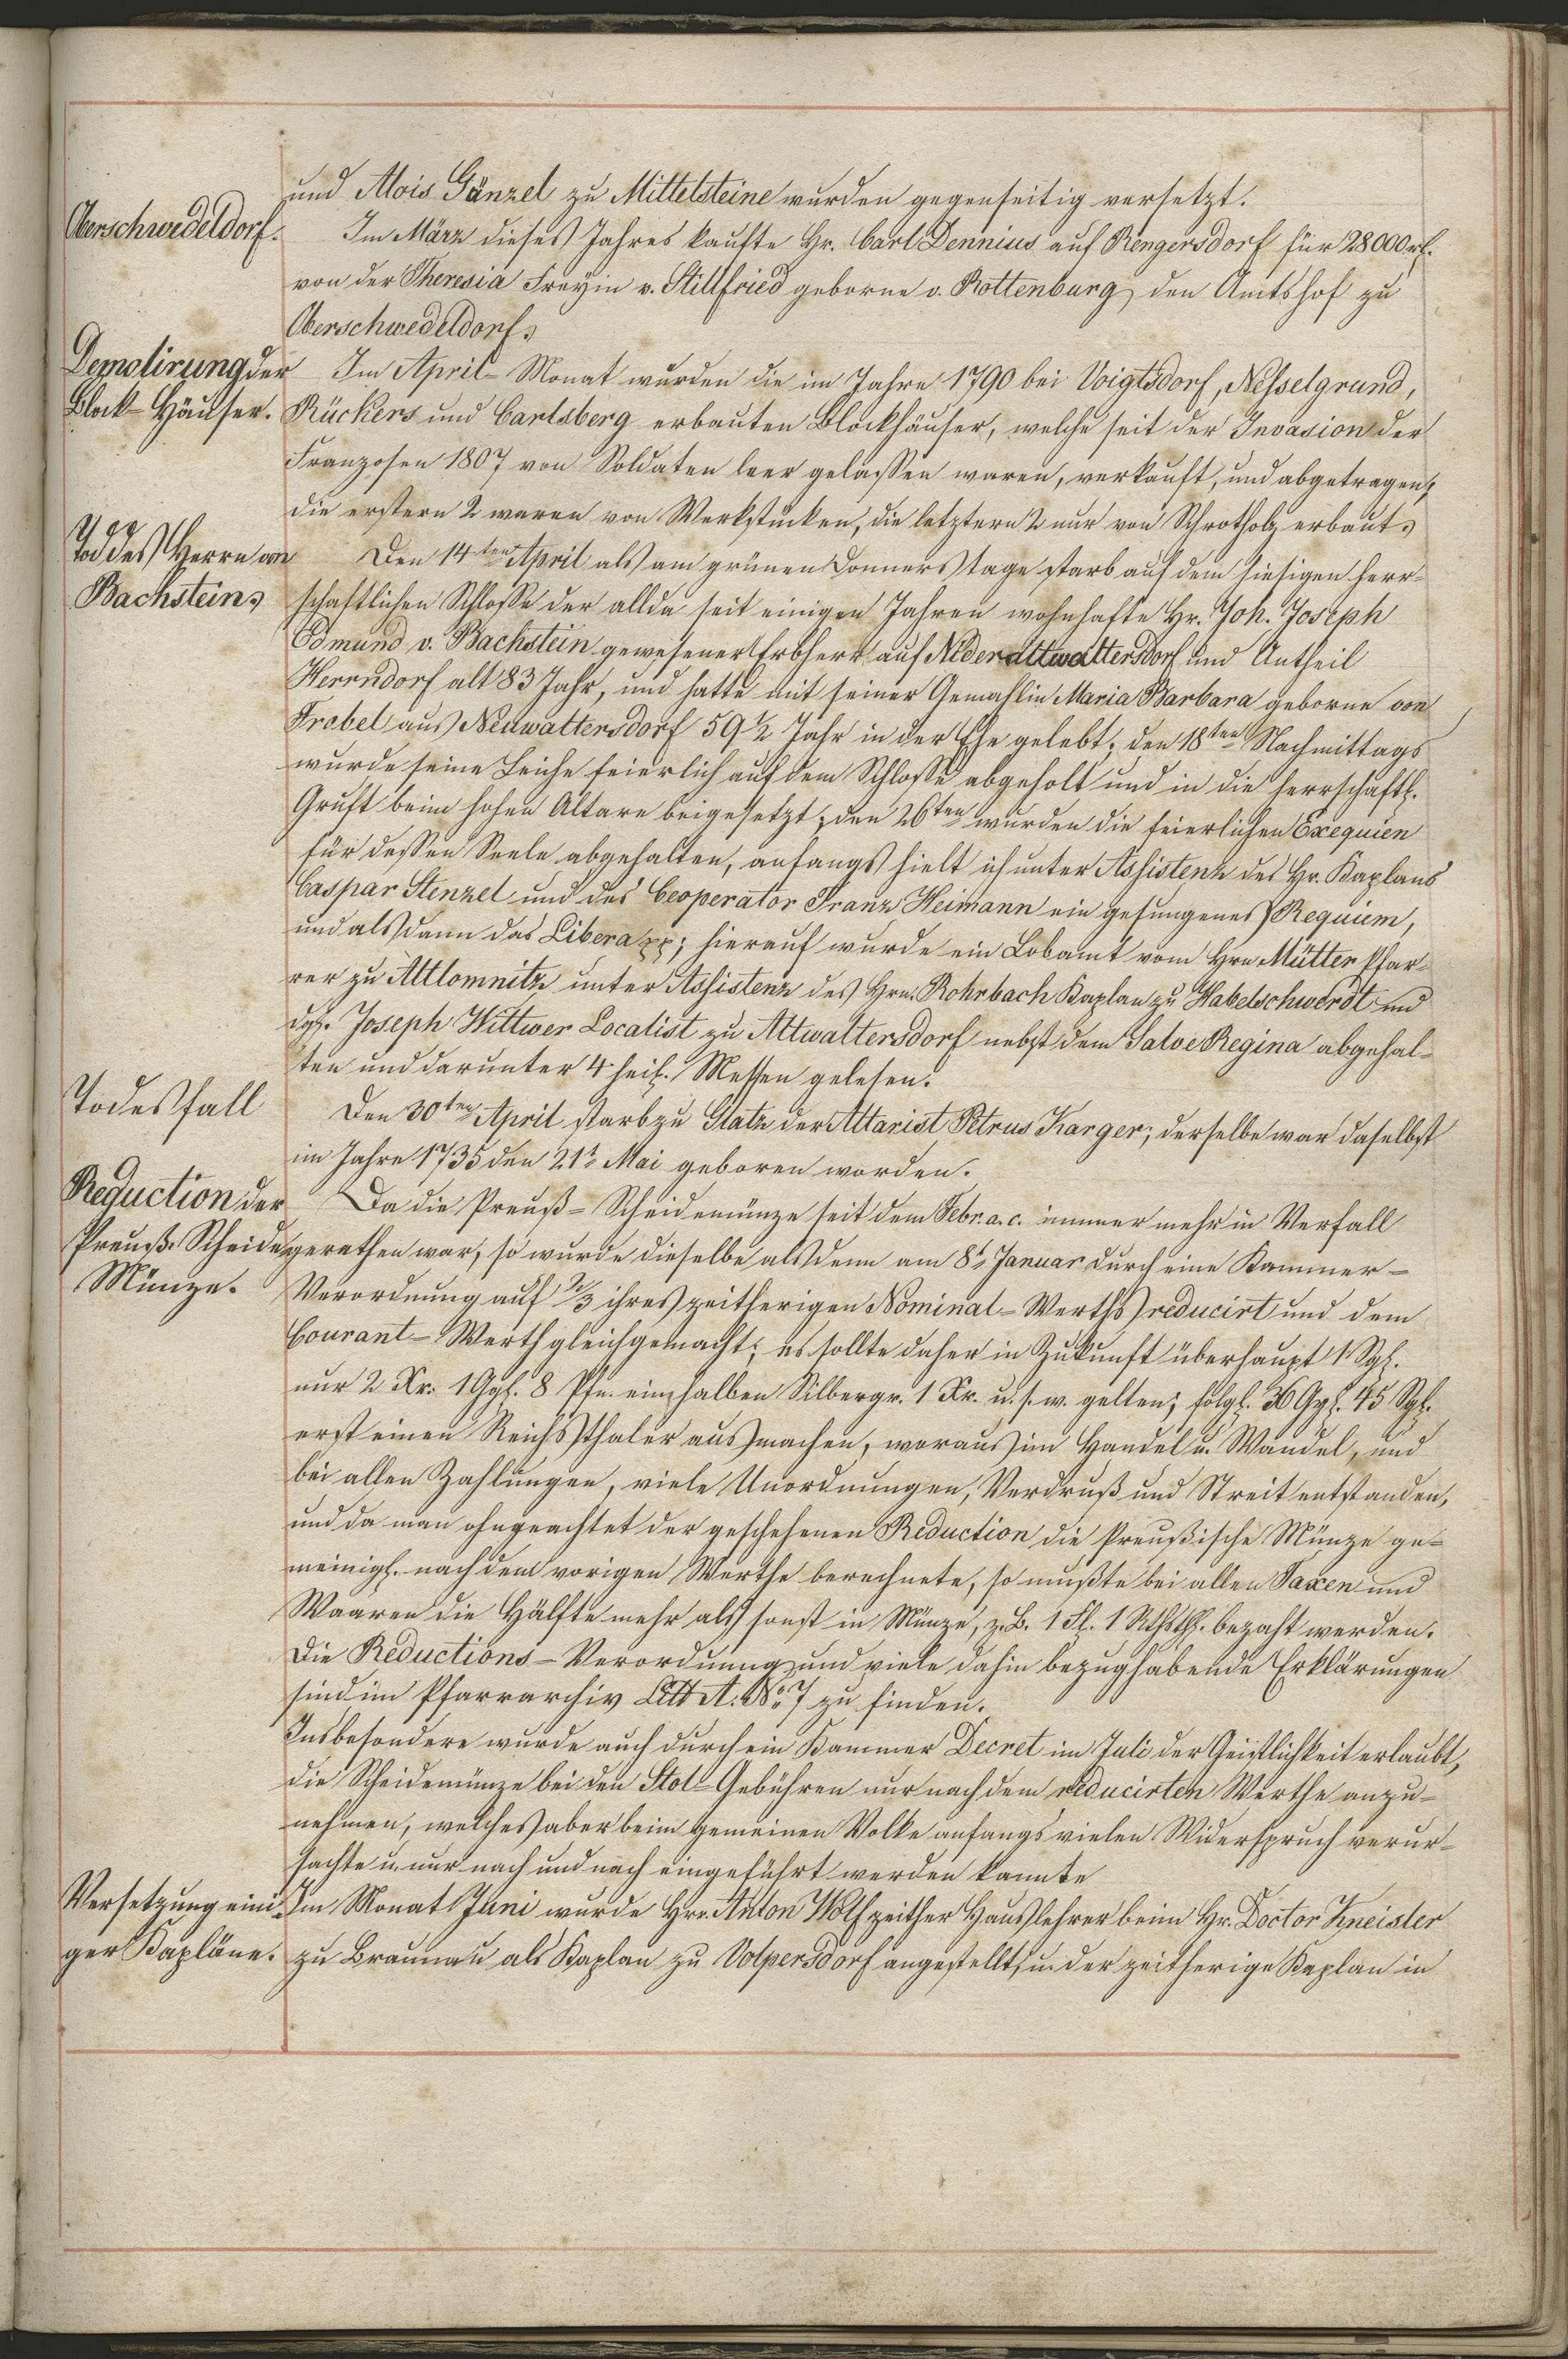 und Alois Gänzel zu Mittelsteine wurden gegenseitig versetzt.
Oberschwedeldorf.
Im März dieses Jahres kaufte Hr. Carl Dennius auf Rengersdorf für 28000 rl.
von der Theresia Freyin v. Stillfried geborne v. Rottenburg den Amtshof zu
Oberschwedeldorf.
Demolirung der
Block-Häuser.
Im April-Monat wurden die im Jahre 1790 bei Voigtsdorf, Nesselgrund,
Rückers und Carlsberg erbauten Blockhäuser, welche seit der Invasion der
Franzosen 1807 von Soldaten leer gelassen waren, verkauft, und abgetragen,
die erstern 2 waren von Werkstücken, die letztern 2 nur von Schrotholz erbaut.
Tod des Herrn von
Bachstein.
Den 14ten April als am grünen Donnerstage starb auf dem hiesigen herr-
schaftlichen Schlosse der allda seit einigen Jahren wohnhafte Hr. Joh. Joseph
Edmund v. Bachstein gewesener Erbherr auf Niederaltwaltersdorf und Antheil
Herrndorf alt 83 Jahr, und hatte mit seiner Gemahlin Maria Barbara geborne von
Frobel aus Neuwaltersdorf 59 1/2 Jahr in der Ehe gelebt; den 18ten Nachmittags
wurde seine Leiche feierlich auf dem Schlosse abgeholt und in die herrschaftl.
Gruft beim hohen Altare beigesetzt; den 26ten wurden die feierlichen Exequien
für dessen Seele abgehalten, anfangs hielt ich unter Assistenz des Hr. Kaplans
Caspar Stenzel und des Cooperator Franz Heimann ein gesungenes Requiem,
und alsdann das Libera pp; hierauf wurde ein Lobamt vom Hrn Mütter Pfar-
rer zu Altlomnitz unter Assistenz des Hrn. Rohrbach Kaplan zu Habelschwerdt und
dgl. Joseph Wittwer Localist zu Altwaltersdorf nebst dem Salve Regina abgehal-
ten und darunter 4 heil. Messen gelesen.
Todesfall
Den 30ten April starb zu Glatz der Altarist Petrus Karger; derselbe war daselbst
im Jahre 1735 den 21t Mai geboren worden.
Reduction der
Preuß. Scheide
Münze.
Da die Preuß-Scheidemünze seit dem Febr. a. c. immer mehr in Verfall
gerathen war, so wurde dieselbe alsdenn am 8t Januar durch eine Kammer-
Verordnung auf 2/3 ihres zeitherigen Nominal-Werths reducirt und dem
Courant-Werth gleichgemacht; es sollte daher in Zukunft überhaupt 1 Sgl.
nur 2 Xr. 1 Ggl. 8 Pfn. einhalben Silbergr. 1 Xr. u. s. w. gelten; folgl. 36 Ggl. 45 Sgl.
erst einen Reichsthaler ausmachen, woraus im Handel u. Wandel, und
bei allen Zahlungen, viele Unordnungen, Verdruß und Streit entstanden,
und da man ohngeachtet der geschehenen Reduction die Preußische Münze ge-
meinigl. nach dem vorigen Werthe berechnete, so mußte bei allen Taxen und
Waaren die Hälfte mehr als sonst in Münze, z. B. 1 Fl. 1 Rthsthl. bezahlt werden.
Die Reductions-Verordnung und viele dahin bezughabende Erklärungen
sind im Pfarrarchiv Litt A. No 7 zu finden.
Insbesondere wurde auch durch ein Kammer Decret im Juli der Geistlichkeit erlaubt,
die Scheidemünze bei den Stol-Gebühren nur nach dem reducirten Werthe anzu-
nehmen, welches aber beim gemeinen Volke anfangs vielen Widerspruch verur-
sachte u. nur nach und nach eingeführt werden kannte
Versetzung eini-
ger Kapläne.
Im Monat Juni wurde Hrr. Anton Wolf zeither Hauslehrer beim Hr. Doctor Kneisler
zu Braunau als Kaplan zu Volpersdorf angestellt, u. der zeitherige Kaplan in